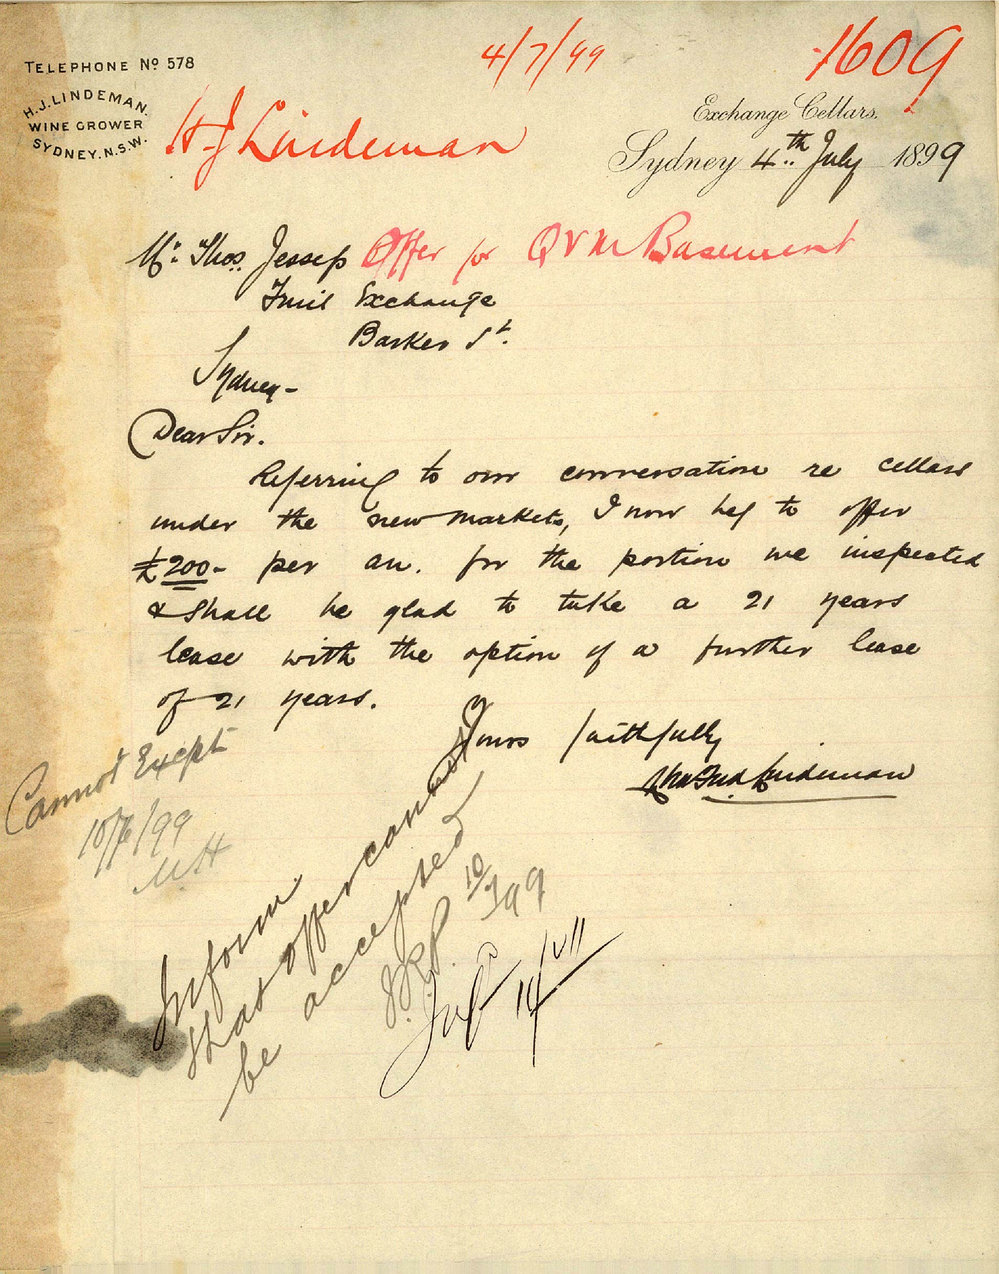 4/7/99
1609
TELEPHONE No 578
H.J. LINDEMAN.
WINE GROWER
SYDNEY. N.S.W.
H J Lindeman
Exchange Cellars.
Sydney 4th July 1899
Mr. Thos. Jessep Offer for QVM Basement
Fruit Exchange
Barker St.
Sydney -
Dear Sir.
Referring to our conversation re cellars
under the new markets, I now beg to offer
£200- per an. for the portion we inspected
& shall be glad to take a 21 years
lease with the option of a further lease
of 21 years.
Yours faithfully
Lindeman
Cannot Except
99
M.H
Inform
that offer cannot
be accepted
10/7/99
14/VII